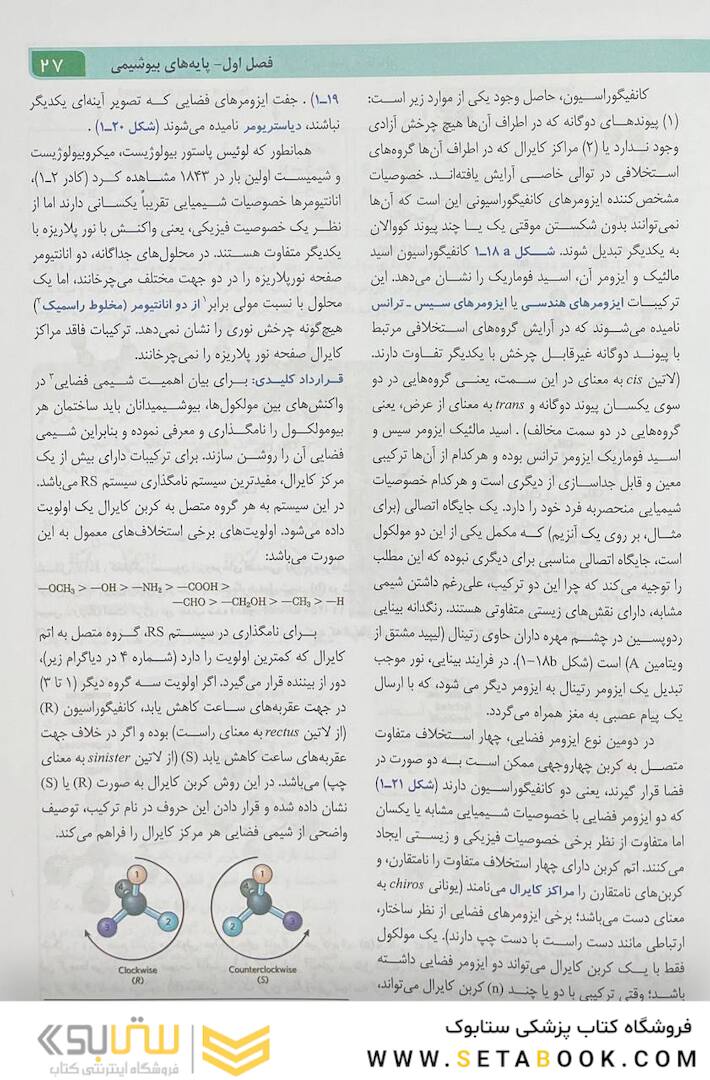 فصل اول- پایه‌های بیوشیمی
۲۷
کانفیگوراسیون، حاصل وجود یکی از موارد زیر است:
(۱) پیوندهـای دوگانه که در اطراف آن‌ها هیچ چرخش آزادی
وجود نـدارد یا (۲) مراکز کایرال که در اطراف آن‌ها گروه‌های
استخلافی در توالی خاصـی آرایش یافته‌انـد. خصوصیات
مشخص‌کننده ایزومرهای کانفیگوراسیونی این است که آن‌ها
نمی‌توانند بدون شکستن موقتی یک یـا چند پیوند کووالان
به یکدیگر تبدیل شوند. شـکل ۱۸ a-۱ کانفیگوراسیون اسید
مالئیک و ایزومر آن، اسـید فوماریک را نشـان می‌دهد. این
ترکیبـات ایزومرهای هندسـی یا ایزومرهای سیس ـ ترانس
نامیده می‌شـوند که در آرایش گروه‌های اسـتخلافی مرتبط
با پیونـد دوگانه غیرقابل چرخش با یکدیگر تفاوت دارند.
(لاتین cis به معنای در این سـمت، یعنـی گروه‌هایی در دو
سوی یکسان پیوند دوگانه و trans به معنای از عرض، یعنی
گروه‌هایی در دو سمت مخالف) . اسید مالئیک ایزومر سیس و
اسـید فوماریک ایزومر ترانس بوده و هرکدام از آن‌ها ترکیبی
معین و قابل جداسـازی از دیگری است و هرکدام خصوصیات
شیمیایی منحصربه فرد خود را دارد. یک جایگاه اتصالی (برای
مثـال، بر روی یک آنزیم) کـه مکمل یکی از این دو مولکول
است، جایگاه اتصالی مناسبی برای دیگری نبوده که این مطلب
را توجیه می‌کند که چرا این دو ترکیب، علی‌رغم داشتن شیمی
مشابه، دارای نقش‌های زیستی متفاوتی هستند. رنگدانه بینایی
ردوپسین در چشـم مهره داران حاوی رتینال (لیپید مشتق از
ویتامین A) است (شکل ۱۸b-۱). در فرایند بینایی، نور موجب
تبدیل یک ایزومر رتینال به ایزومر دیگر می شود، که با ارسال
یک پیام عصبی به مغز همراه می‌گردد.
در دومین نوع ایزومر فضایی، چهار اسـتخلاف متفاوت
متصـل به کربن چهاروجهی ممکن اسـت بـه دو صورت در
فضا قرار گیرند، یعنی دو کانفیگوراسـیون دارند (شکل ۲۱-۱)
که دو ایزومر فضایی با خصوصیات شـیمیایی مشابه یا یکسان
اما متفاوت از نظر برخی خصوصیات فیزیکی و زیسـتی ایجاد
می‌کنند. اتم کربن دارای چهار استخلاف متفاوت را نامتقارن، و
کربن‌های نامتقارن را مراکز کایرال می‌نامند (یونانی chiros به
معنای دست می‌باشد؛ برخی ایزومرهای فضایی از نظر ساختار،
ارتباطی مانند دست راسـت با دست چپ دارند). یک مولکول
فقط با یـک کربن کایرال می‌تواند دو ایزومر فضایی داشـته
باشد؛ وقتی ترکیبی با دو یا چند (n) کربن کایرال می‌تواند،
۱۹-۱) . جفت ایزومرهای فضایی کـه تصویر آینه‌ای یکدیگر
نباشند، دیاستریومر نامیده می‌شوند (شکل ۲۰-۱) .
همانطور که لوئیس پاستور بیولوژیست، میکروبیولوژیست
و شیمیسـت اولین بار در ۱۸۴۳ مشـاهده کـرد (کادر ۲-۱)،
انانتیومرها خصوصیات شـیمیایی تقریباً یکسـانی دارند اما از
نظـر یک خصوصیت فیزیکـی، یعنی واکنـش با نور پلاریزه با
یکدیگر متفاوت هسـتند. در محلول‌های جداگانه، دو انانتیومر
صفحه نورپلاریزه را در دو جهت مختلف می‌چرخانند، اما یک
محلول با نسبت مولی برابر۱ از دو انانتیومر (مخلوط راسمیک۲)
هیچ‌گونه چرخش نوری را نشان نمی‌دهد. ترکیبات فاقد مراکز
کایرال صفحه نور پلاریزه را نمی‌چرخانند.
قـرارداد کلیـدی: بـرای بیان اهمیـت شـیمی فضایی۳ در
واکنش‌های بین مولکول‌ها، بیوشـیمیدانان باید ساختمان هر
بیومولکـول را نامگـذاری و معرفی نموده و بنابراین شـیمی
فضایی آن را روشـن سازند. برای ترکیبات دارای بیش از یک
مرکز کایرال، مفیدترین سیستم نامگذاری سیستم RS می‌باشد.
در این سیسـتم به هر گروه متصل به کربن کایرال یک اولویت
داده می‌شود. اولویت‌های برخی استخلاف‌های معمول به این
صورت می‌باشد:
—OCH₃ > —OH > —NH₂ > —COOH >
—CHO > —CH₂OH > —CH₃ > —H
بـرای نامگذاری در سیسـتم RS، گـروه متصل به اتم
کایرال که کمترین اولویت را دارد (شـماره ۴ در دیاگرام زیر)،
دور از بیننده قرار می‌گیرد. اگر اولویت سـه گروه دیگر (۱ تا ۳)
در جهت عقربه‌های سـاعت کاهش یابد، کانفیگوراسیون (R)
(از لاتین rectus به معنای راسـت) بوده و اگر در خلاف جهت
عقربه‌های ساعت کاهش یابد (S) (از لاتین sinister به معنای
چپ) می‌باشد. در این روش کربن کایرال به صورت (R) یا (S)
نشان داده شده و قرار دادن این حروف در نام ترکیب، توصیف
واضحی از شیمی فضایی هر مرکز کایرال را فراهم می‌کند.
1 4 3 2
1 4 2 3
Clockwise
(R)
Counterclockwise
(S)
فروشگاه کتاب پزشکی ستابوک
WWW.SETABOOK.COM
ستابوک
فروشگاه اینترنتی کتاب